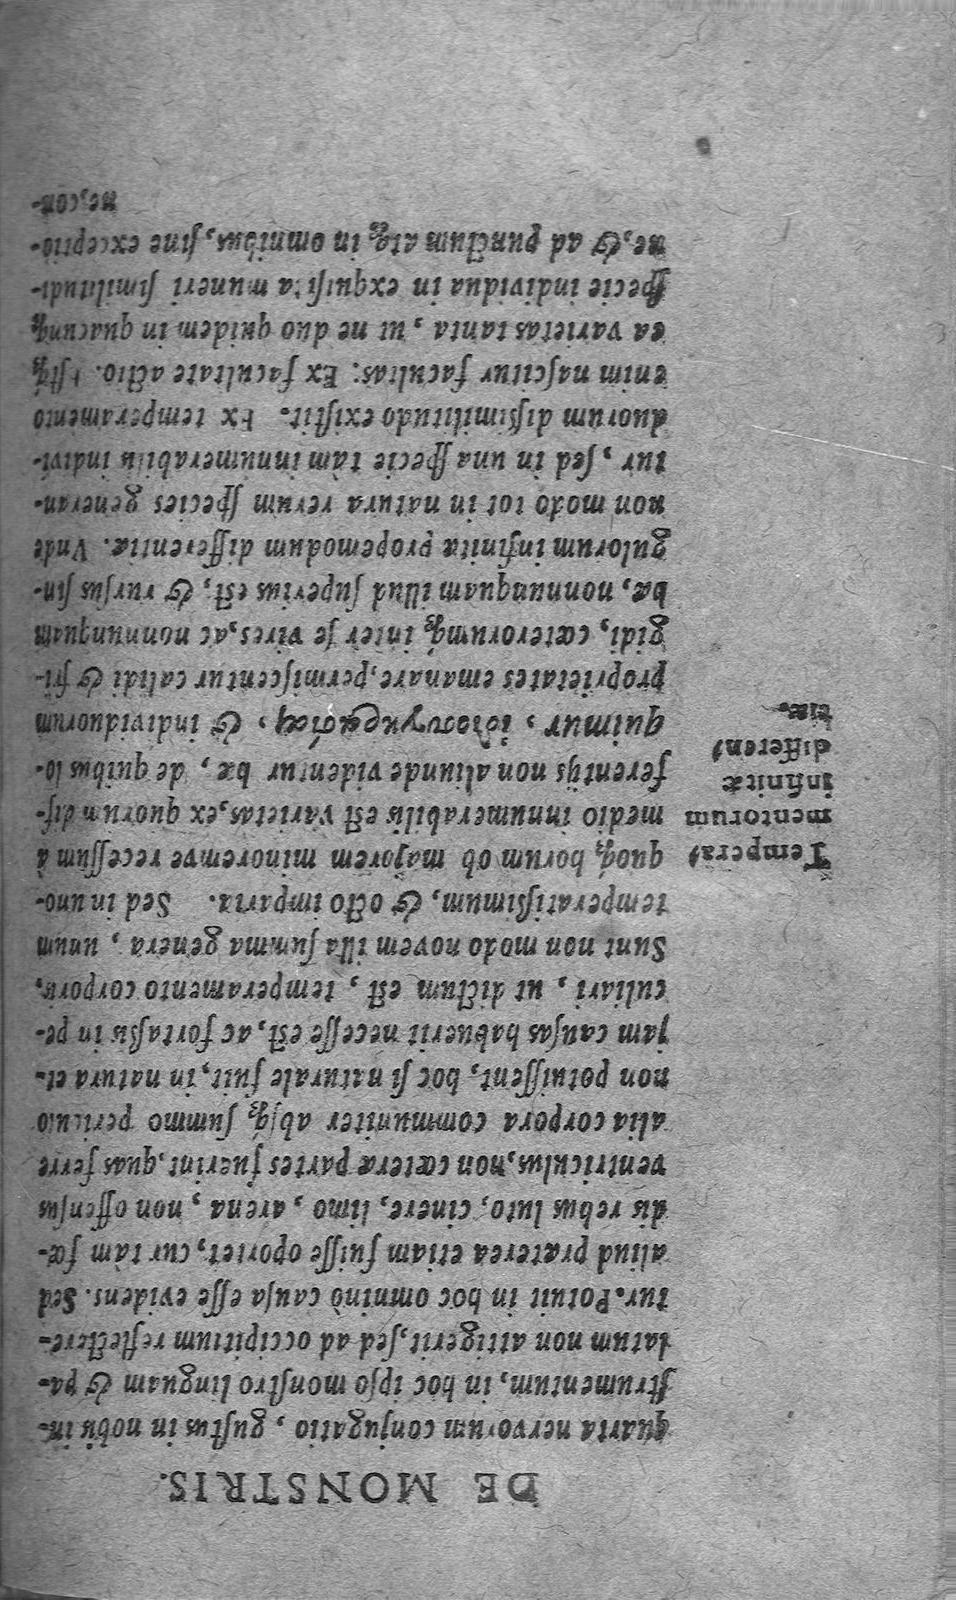 DE MONSTRIS.
quarta nervorum conjugatio, gustus in nobis in-
strumentum, in hoc ipso monstro linguam & pa-
latum non attigerit, sed ad occipitium reflectere-
tur. Potuit in hoc omninò causa esse evidens. Sed
aliud præterea etiam fuisse oportet, cur tàm fœ-
dis rebus luto, cinere, limo, arena, non offensus
ventriculus, non cæteræ partes fuerint, quas ferre
alia corpora communiter absq; summo periculo
non potuissent, hoc si naturale fuit, in natura et-
jam causas habuerit necesse est, ac fortassis in pe-
culiari, ut dictum est, temperamento corporis,
Sunt non modo novem illa summa genera, unum
temperatissimum, & octo imparia. Sed in uno-
quoq; horum ob majorem minoremve recessum à
medio innumerabilis est varietas, ex quorum dif-
ferentijs non aliunde videntur hæ, de quibus lo-
quimur, ἰδιοσυγκρασίαι, & individuorum
proprietates emanare, permiscentur calidi & fri-
gidi, cæterorumq; inter se vires, ac nonnunquam
hæ, nonnunquam illud superius est, & rursus sin-
gulorum infinitæ propemodum differentiæ. Vnde
non modò tot in natura rerum species generan-
tur, sed in una specie tàm innumerabilis indivi-
duorum dissimilitudo existit. Ex temperamento
enim nascitur facultas: Ex facultate actio. Estq;
ea varietas tanta, ut ne duo quidem in quacunq;
specie individua in exquisita muneri similitudi-
ne, & ad punctum atq; in omnibus, sine exceptio-
ne, con-
Temperat
mentorum
infinitæ
different
tiæ.